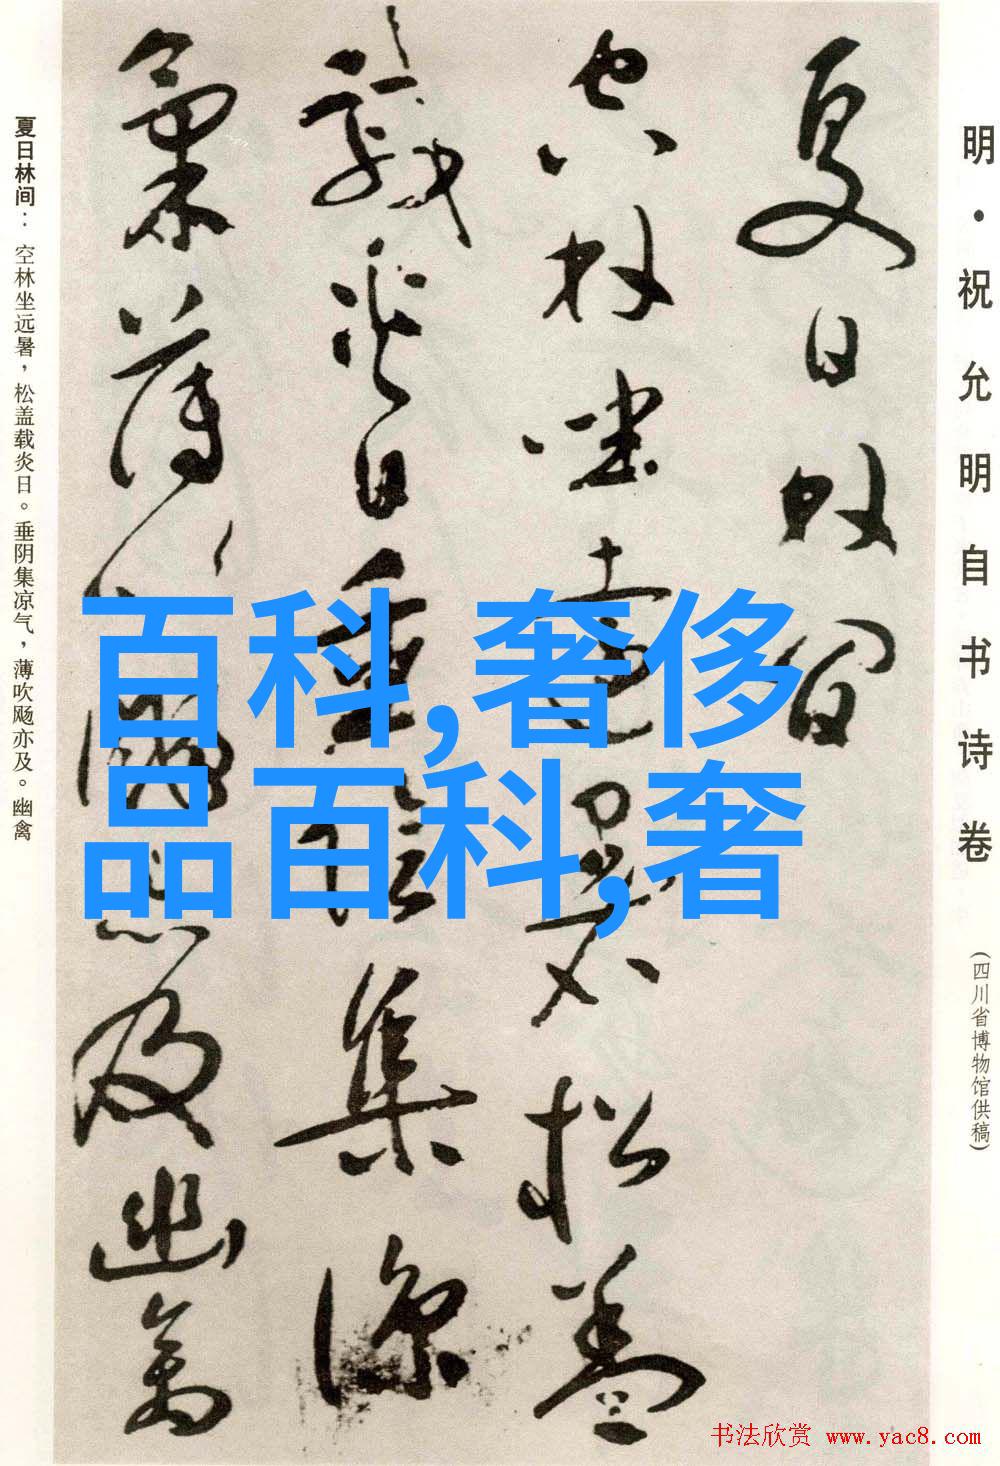 明·祝允明自书诗卷
(四川省博物馆供稿)
夏日林间
空林坐远暑松盖
载炎日垂阴集凉
气薄吹飏亦及幽禽
夏日林间：空林坐远暑，松盖载炎日。垂阴集凉气，薄吹飏亦及。幽禽
百科,奢侈
品百科,奢
书法欣赏 www.yac8.com